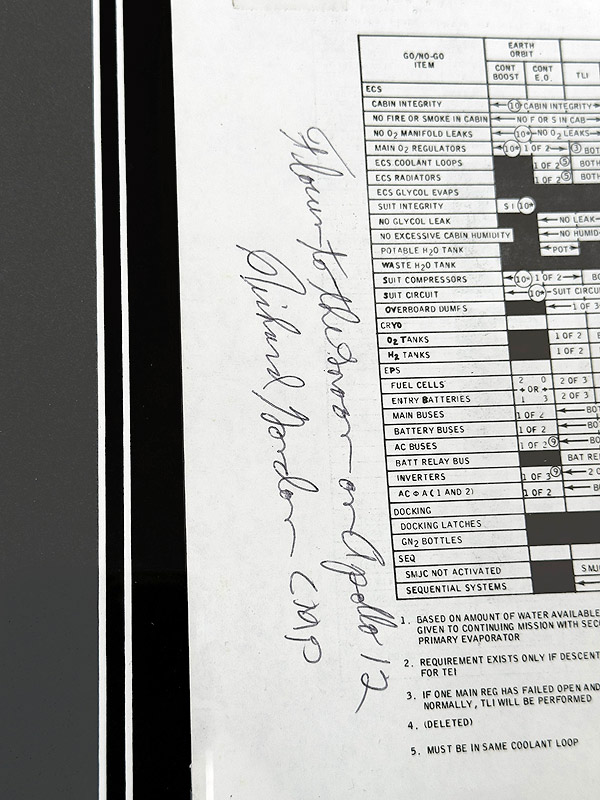 Flown to the moon on Apollo 12
Richard Gordon CMP
GO/NO-GO ITEM
EARTH ORBIT
CONT BOOST
CONT E.O.
TLI
ECS
CABIN INTEGRITY 10 CABIN INTEGRITY
NO FIRE OR SMOKE IN CABIN NO F OR S IN CAB
NO O2 MANIFOLD LEAKS 10* NO O2 LEAKS
MAIN O2 REGULATORS 10* 1 OF 2 3 BOT
ECS COOLANT LOOPS 1 OF 2 5 BOTH
ECS RADIATORS 1 OF 2 5 BOTH
ECS GLYCOL EVAPS
SUIT INTEGRITY S I 10*
NO GLYCOL LEAK NO LEAK
NO EXCESSIVE CABIN HUMIDITY NO HUMID
POTABLE H2O TANK POT
WASTE H2O TANK
SUIT COMPRESSORS 10* 1 OF 2 BO
SUIT CIRCUIT 10* SUIT CIRCU
OVERBOARD DUMPS 1 OF 3
CRYO
O2 TANKS 1 OF 2
H2 TANKS 1 OF 2
EPS
FUEL CELLS 2 0 2 OF 3
OR
ENTRY BATTERIES 1 3 2 OF 3
MAIN BUSES 1 OF 2 BOT
BATTERY BUSES 1 OF 2 BO
AC BUSES 1 OF 2 9 BO
BATT RELAY BUS BAT REL
INVERTERS 1 OF 3 9 2 O
AC Φ A (1 AND 2) 1 OF 2 B
DOCKING
DOCKING LATCHES
GN2 BOTTLES
SEQ
SMJC NOT ACTIVATED SMJC
SEQUENTIAL SYSTEMS
1. BASED ON AMOUNT OF WATER AVAILABLE
GIVEN TO CONTINUING MISSION WITH SEC
PRIMARY EVAPORATOR
2. REQUIREMENT EXISTS ONLY IF DESCENT
FOR TEI
3. IF ONE MAIN REG HAS FAILED OPEN AND
NORMALLY, TLI WILL BE PERFORMED
4. (DELETED)
5. MUST BE IN SAME COOLANT LOOP